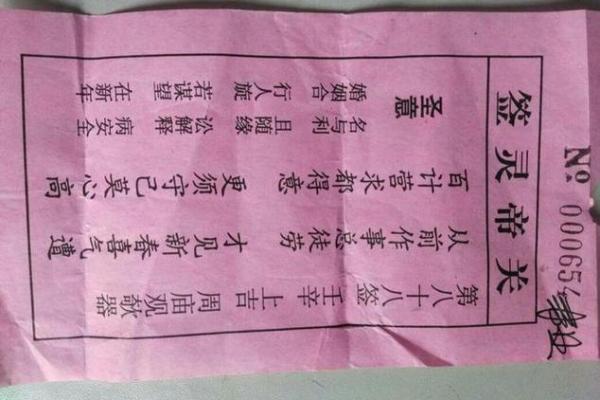 № 000654
关帝灵签
第八十八签 壬辛 上吉 周庙观欹器
从前作事总徒劳 才见新春喜气遭
百计营求都得意 更须守己莫心高
圣意
名与利 且随缘 讼解释 病安全
婚姻合 行人旋 若谋望 在新年